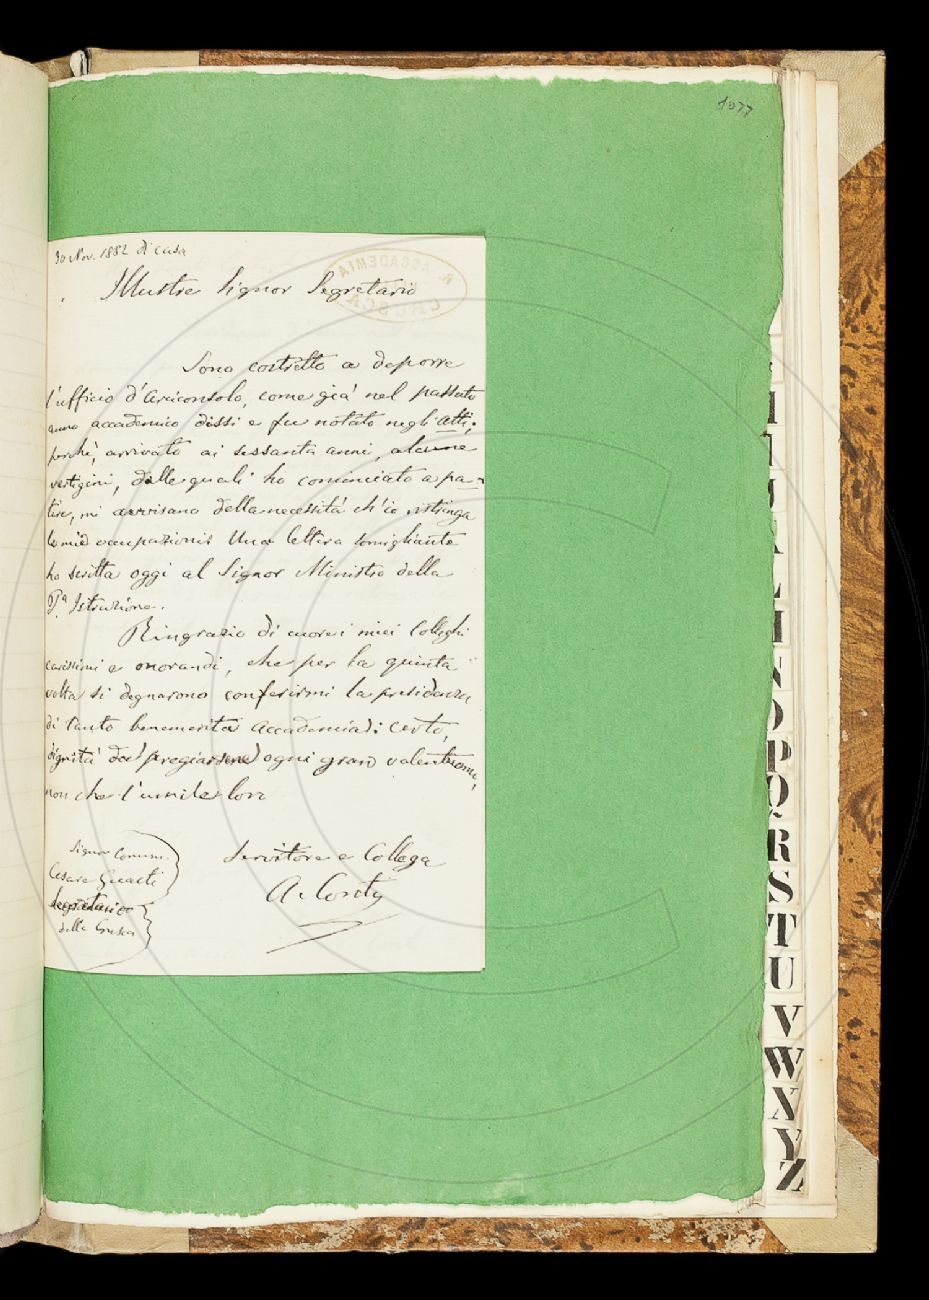 1077
30 Nov. 1882 di casa
Illustre Signor Segretario
R. ACCADEMIA
CRUSCA
Sono costretto a deporre
l'ufficio d'Arciconsolo, come già nel passato
anno accademico dissi e fu notato negli Atti;
perchè, arrivato ai sessanta anni, alcune
vertigini, dalle quali ho cominciato a pa-
tire, mi avvisano della necessità ch'io ristringa
le mie occupazioni. Una lettera somigliante
ho scritta oggi al Signor Ministro della
Pª Istruzione.
Ringrazio di cuore i miei Colleghi
carissimi e onorandi, che per la quinta
volta si degnarono conferirmi la presidenza
di tanto benemerita Accademia: di certo,
dignità da pregiarsene ogni gran valentuomo,
non che l'umile loro
Servitore e Collega
A. Conti
Signor Comm.
Cesare Guasti
Segretario
della Crusca
I
J
L
M
N
O
P
Q
R
S
T
U
V
W
X
Y
Z